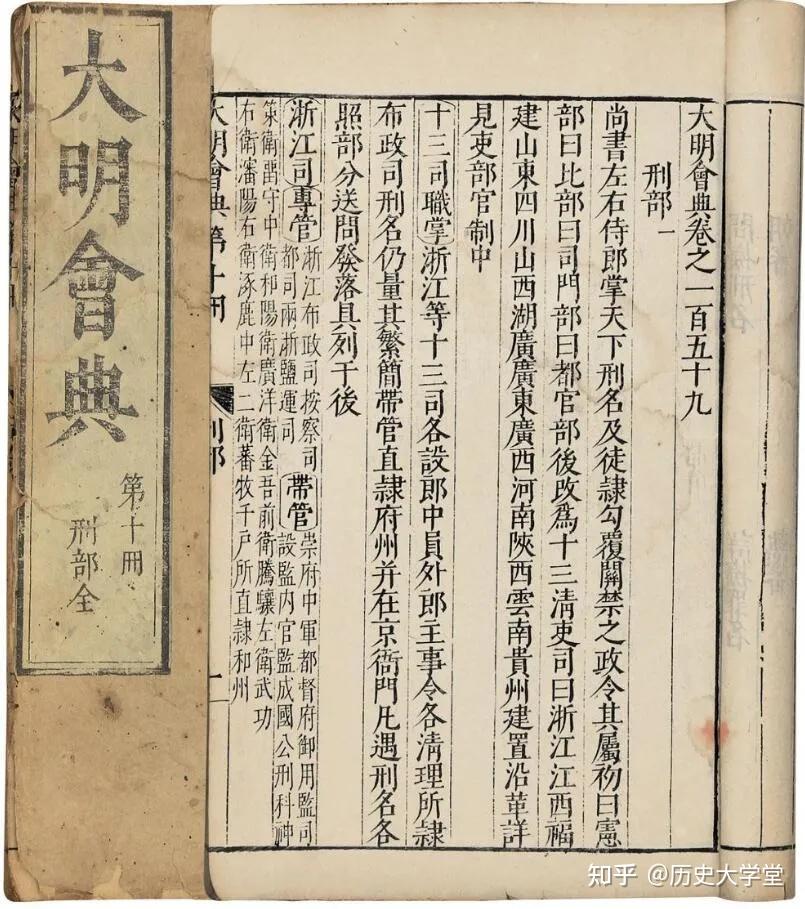 大明會典
第十冊
刑部全
大明會典卷之一百五十九
刑部一
尚書左右侍郎掌天下刑名及徒隷勾覆關禁之政令其屬初曰憲
部曰比部曰司門部曰都官部後改爲十三清吏司曰浙江江西福
建山東四川山西湖廣廣東廣西河南陝西雲南貴州建置沿革詳
見吏部官制中
十三司職掌浙江等十三司各設郎中員外郎主事令各清理所隷
布政司刑名仍量其繁簡帶管直隷府州并在京衙門凡遇刑名各
照部分送問發落具列于後
浙江司專管
浙江布政司按察司
都司兩浙鹽運司
帶管
崇府中軍都督府御用監司
設監内官監成國公刑科神
策衛畱守中衛和陽衛廣洋衛金吾前衛騰驤左衛武功
右衛瀋陽右衛涿鹿中左二衛蕃牧千戶所直隷和州
大明會典第十冊
刑部
知乎 @历史大学堂